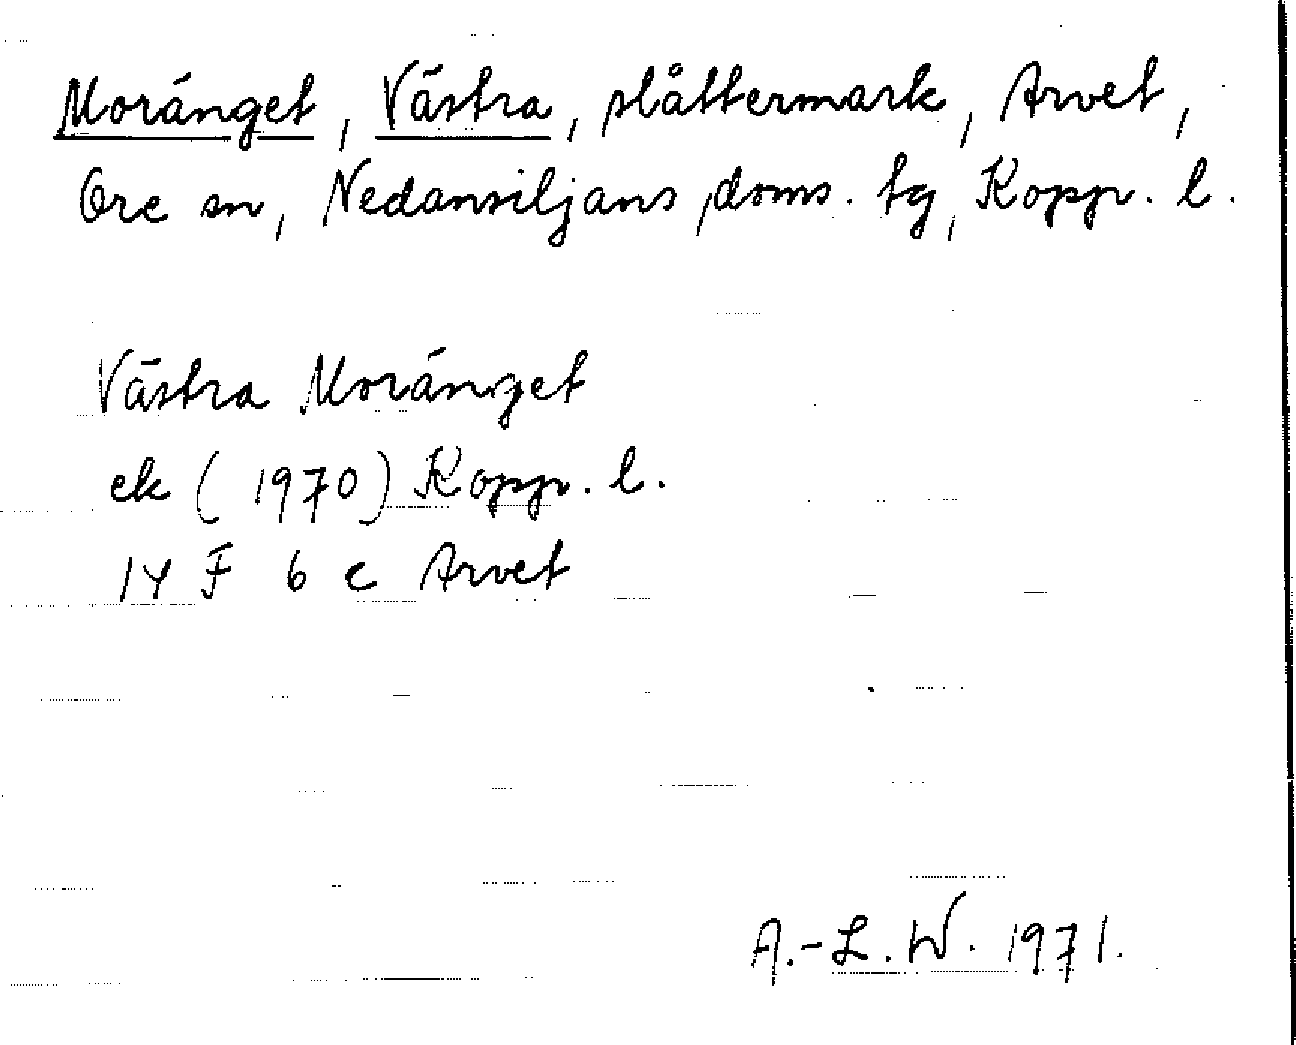 Moränget, Västra, slåttermark, Arvet,
Ore sn, Nedansiljans, doms. tg, Kopp. l.
Västra Moränget
ek (1970) Kopp. l.
14 F 6 c Arvet
A.-L. W. 1971.